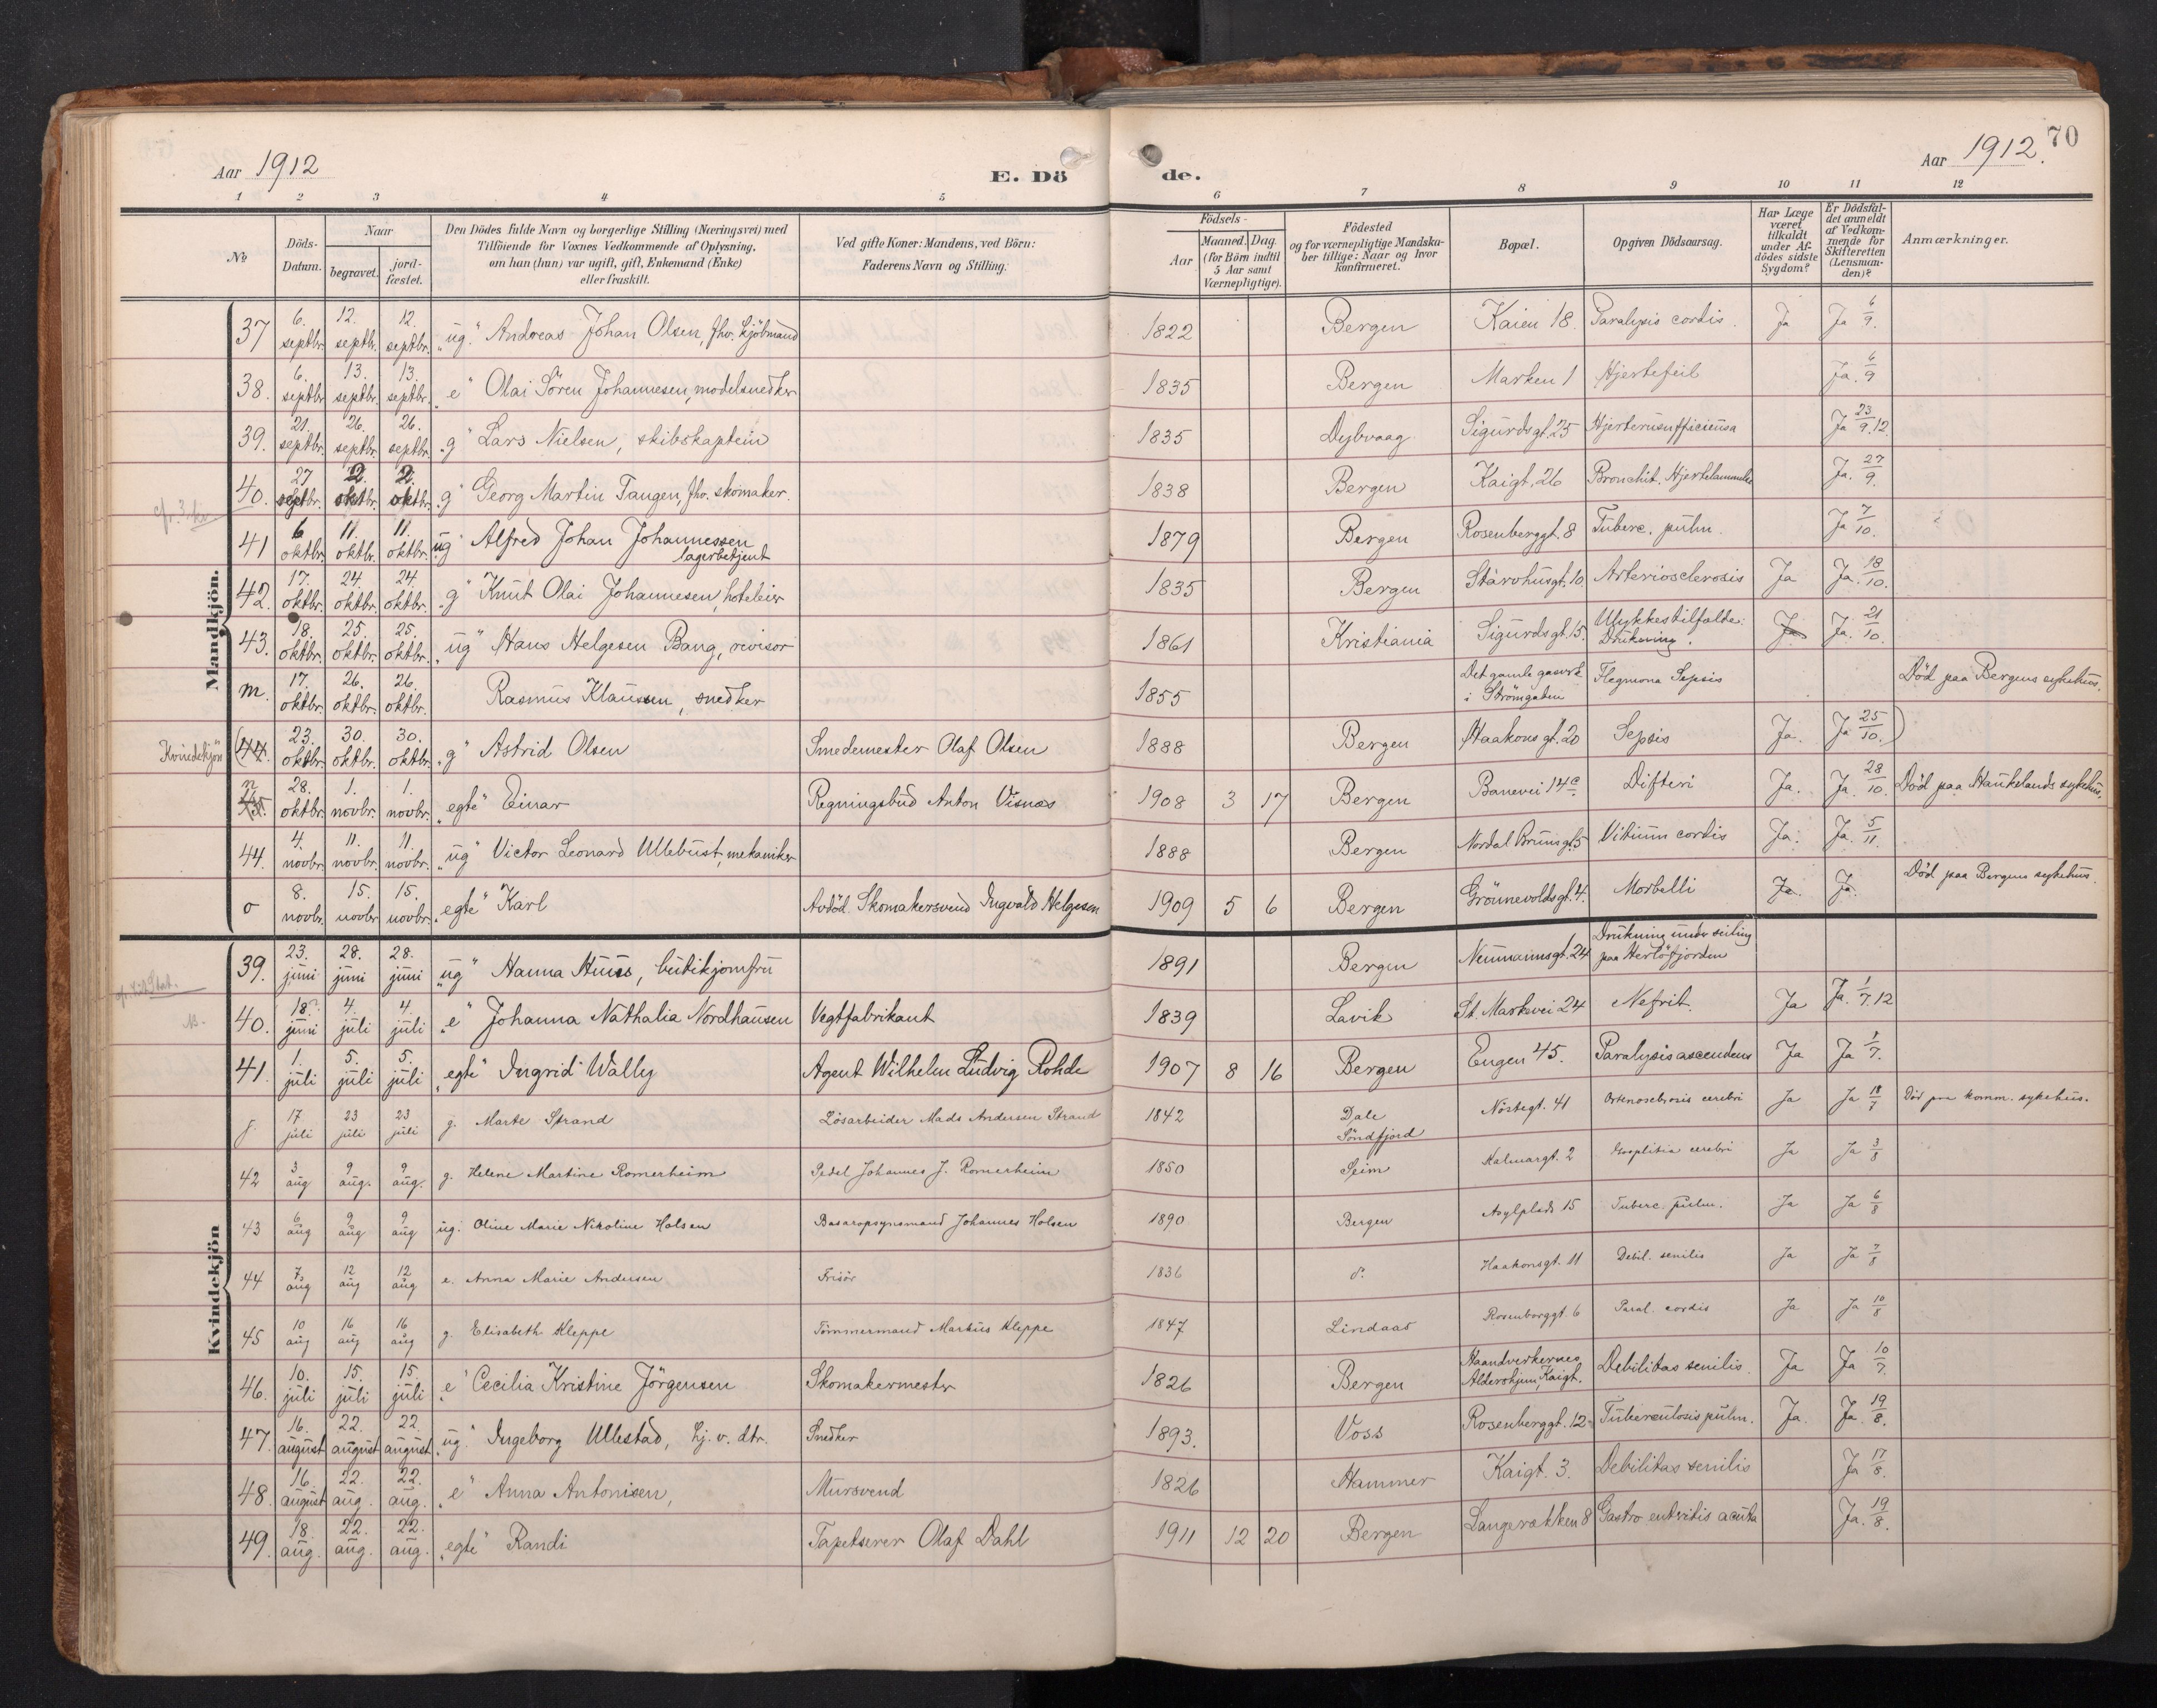 Aar 1912
E. Dö
de.
Aar 1912.
70
1 2 3 4 5 6 7 8 9 10 11 12
No
Döds-Datum.
Naar
begravet. jord-fæstet.
Den Dödes fulde Navn og borgerlige Stilling (Næringsvei) med
Tilföiende for Voxnes Vedkommende af Oplysning,
om han (hun) var ugift, gift, Enkemand (Enke)
eller fraskilt.
Ved gifte Koner: Mandens, ved Börn:
Faderens Navn og Stilling.
Födsels-
Aar Maaned. Dag.
(for Börn indtil
5 Aar samt
Værnepligtige).
Födested
og for værnepligtige Mandska-
ber tillige: Naar og hvor
konfirmeret.
Bopæl.
Opgiven Dödsaarsag.
Har Læge
været
tilkaldt
under Af-
dödes sidste
Sygdom?
Er Dödsfal-
det anmeldt
af Vedkom-
mende for
Skifteretten
(Lensman-
den)?
Anmærkninger.
Mandkjön.
37 6. septbr. 12. septb. 12. septbr. "ug." Andreas Johan Olsen, fhv. kjöbmand 1822 Bergen Kaien 18. Paralysis cordis. Ja Ja 6/9.
38. 6. septbr 13. septbr. 13. septbr. "e" Olai Sören Johannesen, modelsnedker 1835 Bergen Marken 1 Hjertefeil Ja. 6/9
39. 21. septbr. 26. septbr. 26. septbr. "g" Lars Nielsen, skibskaptein 1835 Dybvaag Sigurdsgt. 25 Ja 23/9.12.
40. 27 septbr. 2. oktbr. 2. oktbr. "g" Georg Martin Tangen, fhv. skomaker. 1838 Bergen Kaigt. 26 Bronchit. Hjertelammelse Ja. 27/9.
41 6 oktbr. 11. oktbr. 11. oktbr. "ug" Alfred Johan Johannessen
lagerbetjent 1879 Bergen Rosenberggt. 8 Tuberc. pulm. Ja 7/10.
42. 17. oktbr. 24. oktbr. 24. oktbr. "g" Knut Olai Johannesen, hoteleier 1835 Bergen Starvhusgt. 10 Arteriosclerosis Ja Ja. 18/10.
43. 18. oktbr. 25. oktbr. 25. oktbr. "ug" Hans Helgesen Bang, revisor 1861 Kristiania Sigurdsgt. 15. Ulykkestilfælde:
Drukning. Ja Ja. 21/10.
m. 17. oktbr. 26. oktbr. 26. oktbr. Rasmus Klaussen, snedker 1855 Det gamle gasverk
i Strömgaten Flegmona Sepsis Död paa Bergens sykehus.
Kvindekjön (44. 23. oktbr. 30. oktbr. 30. oktbr. "g" Astrid Olsen Smedemester Olaf Olsen 1888 Bergen Haakonsgt. 20 Sepsis Ja. Ja 25/10.)
n 45. 28. oktbr. 1. novbr. 1. novbr. "egte" Einar Regningsbud Anton Visnæs 1908 3 17 Bergen Banevei 14c Difteri Ja. Ja. 28/10. Död paa Haukelands sykehus.
44. 4. novbr. 11. novbr. 11. novbr. "ug" Victor Leonard Ullebust, mekaniker 1888 Bergen Nordal Brunsgt. 5 Vitium cordis Ja. Ja. 5/11.
o 8. novbr. 15. novbr 15. novbr. "egte" Karl Avdöd Skomakersvend Ingvald Helgesen 1909 5 6 Bergen Grönnevoldsgt. 4. Morbelli Ja. Ja. Död paa Bergens sykehus.
Kvindekjön
39. 23. juni 28. juni 28. juni "ug" Hanna Huus, butikjomfru 1891 Bergen Neumannsgt. 24 Drukning under seiling
paa Herlöfjorden
40. 18? juni 4. juli 4. juli "e" Johanna Nathalia Nordhausen Vegtfabrikant 1839 Lavik St. Marksvei 24 Nefrit. Ja Ja. 1/7 12
41. 1. juli 5. juli 5. juli "egte" Ingrid Wally Agent Wilhelm Ludvig Rohde 1907 8 16 Bergen Engen 45. Paralysis ascendens Ja Ja 1/7.
j. 17 juli 23 juli 23 juli g. Marte Strand Lösarbeider Mads Andersen Strand 1842 Dale
Söndfjord Nöstegt. 41 cerebri Ja Ja 18/7 Död paa komm. sykehus.
42 3 aug 9 aug. 9 aug. g. Helene Martine Romerheim Pedel Johannes J. Romerheim 1850 Seim Kalmargt. 2 cerebri Ja Ja 3/8
43 6 aug 9 aug 9 aug ug. Oline Marie Nikoline Holsen Basaropsynsmand Johannes Holsen 1890 Bergen Asylplads 15 Tuberc. pulm. Ja Ja 6/8
44 7 aug 12 aug 12 aug e. Anna Marie Andersen Frisör 1836 d. Haakonsgt. 11 Debil. senilis Ja Ja 7/8
45 10 aug 16 aug 16 aug g. Elisabeth Kleppe Tömmermand Markus Kleppe 1847 Lindaas Rosenberggt. 6 Paral. cordis Ja Ja 10/8
46. 10. juli 15. juli 15. juli "e" Cecilia Kristine Jörgensen Skomakermester 1826 Bergen Haandverkernes
Aldershjem, Kaigt. Debilitas senilis. Ja Ja 10/7.
47. 16. august 22. august 22 august "ug." Ingeborg Ullestad, hj. v. dtr. Snedker 1893. Voss Rosenberggt. 12 Tuberculosis pulm. Ja. Ja. 19/8.
48. 16. august 22. aug. 22. aug. "e" Anna Antonisen, Mursvend 1826 Hammer Kaigt. 3. Debilitas senilis Ja 17/8.
49. 18. aug. 22. aug. 22. aug. "egte" Randi Tapetserer Olaf Dahl 1911 12 20 Bergen Langerækken 8 Gastro enteritis acuta Ja. 19/8.